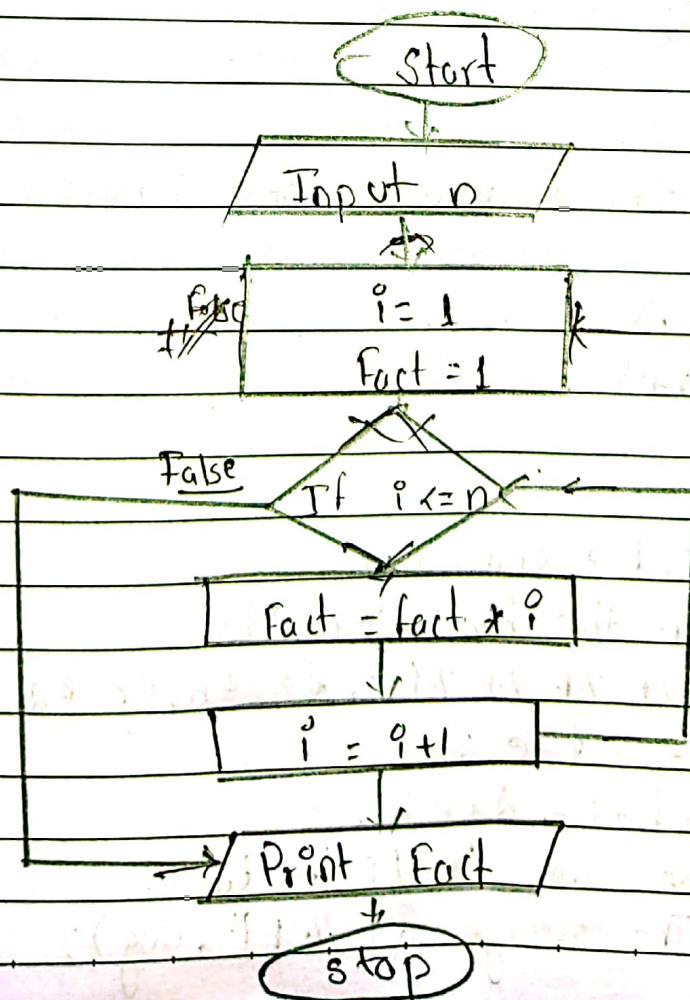 Start
Input n
i = 1
Fact = 1
False
If i <= n
Fact = fact * i
i = i+1
Print Fact
stop